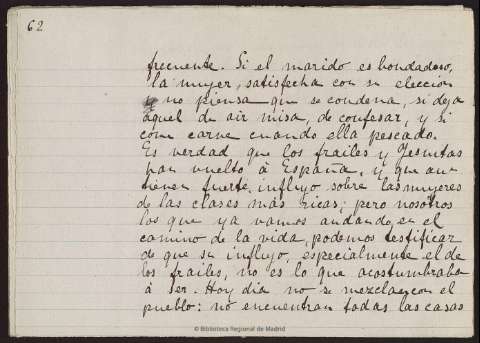 62
frecuente. Si el marido es bondadoso,
la mujer, satisfecha con su eleccion
no piensa que se condena, si deja
aquel de oir misa, de confesar, y si
come carne cuando ella pescado.
Es verdad que los frailes y Jesuitas
han vuelto á España, y que aun
tienen fuerte influjo sobre las mujeres
de las clases más ricas; pero nosotros
los que ya vamos andando, en el
camino de la vida, podemos testificar
de que su influjo, especialmente el de
los frailes, no es lo que acostumbraba
á ser. Hoy dia no se mezclan con el
pueblo: no encuentran todas las casas
© Biblioteca Regional de Madrid